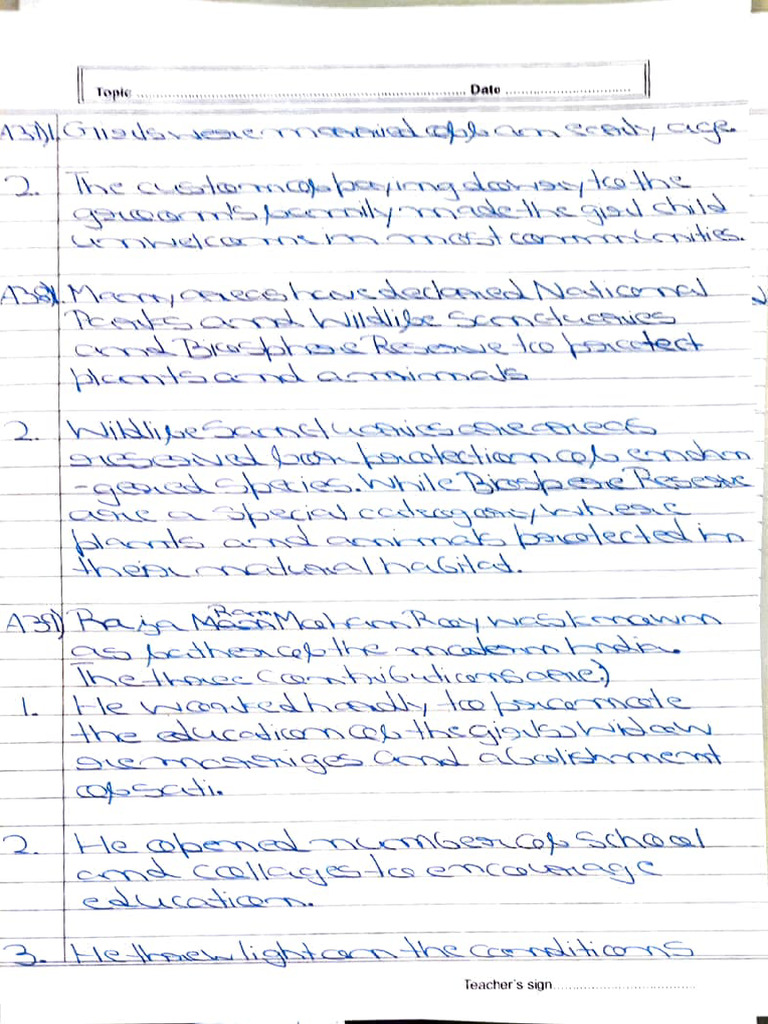 Topic ........ Date ........
A31)1. Girls were married off at an early age.
2. The custom of paying dowry to the
groom's family made the girl child
unwelcome in most communities.
Many areas have declared National
Parks and Wildlife Sanctuaries
and Biosphere Reserve to protect
plants and animals
2. Wildlife Sanctuaries are areas
reserved for protection of endan
-gered species. While Biosphere Reserve
are a special category, where
plants and animals protected in
their natural habitat.
Raja Ram Mohan Roy was known
as father of the modern India.
The three contributions are:)
1. He worked hardly to promote
the education of the girls, widow
remarriges and abolishment
of sati.
2. He opened number of school
and collages to encourage
education.
3. He threw light on the conditions
Teacher's sign........